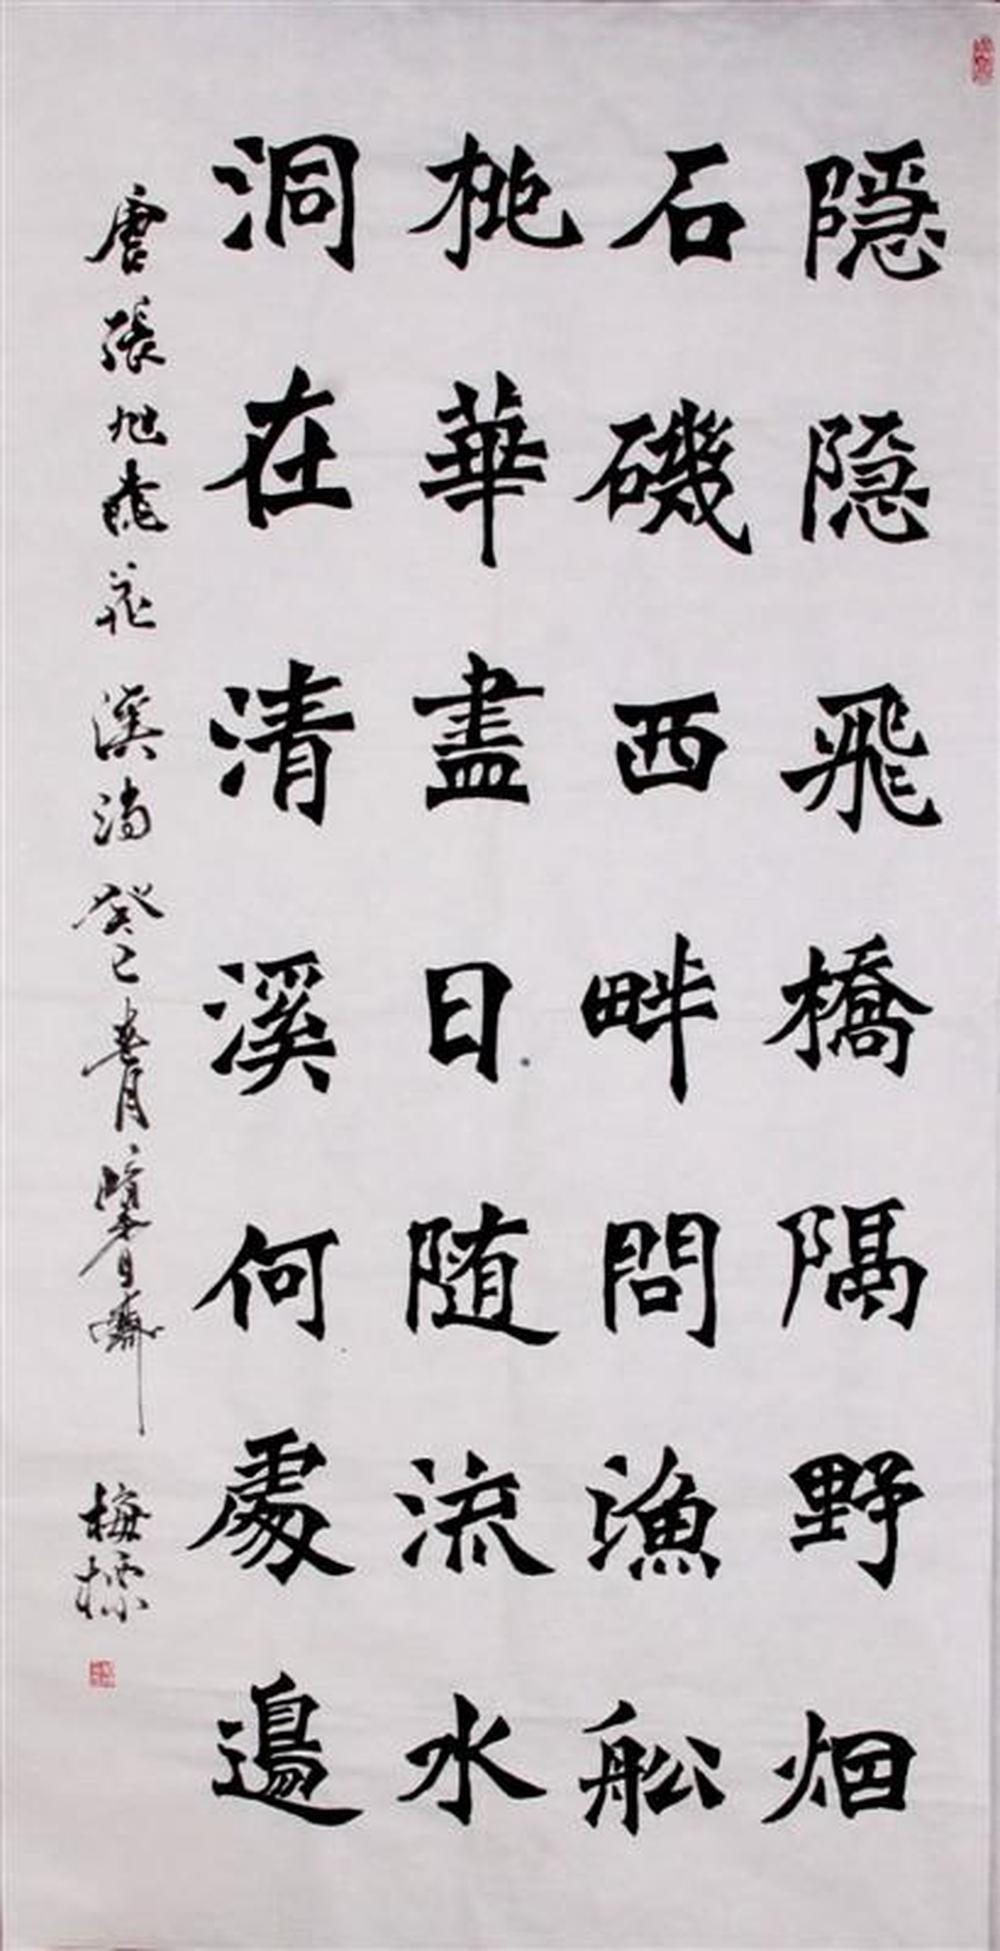 隱隐飛橋隔野烟
石磯西畔問漁船
桃華盡日随流水
洞在清溪何處邊
唐張旭桃花溪詩癸巳春月 梅標